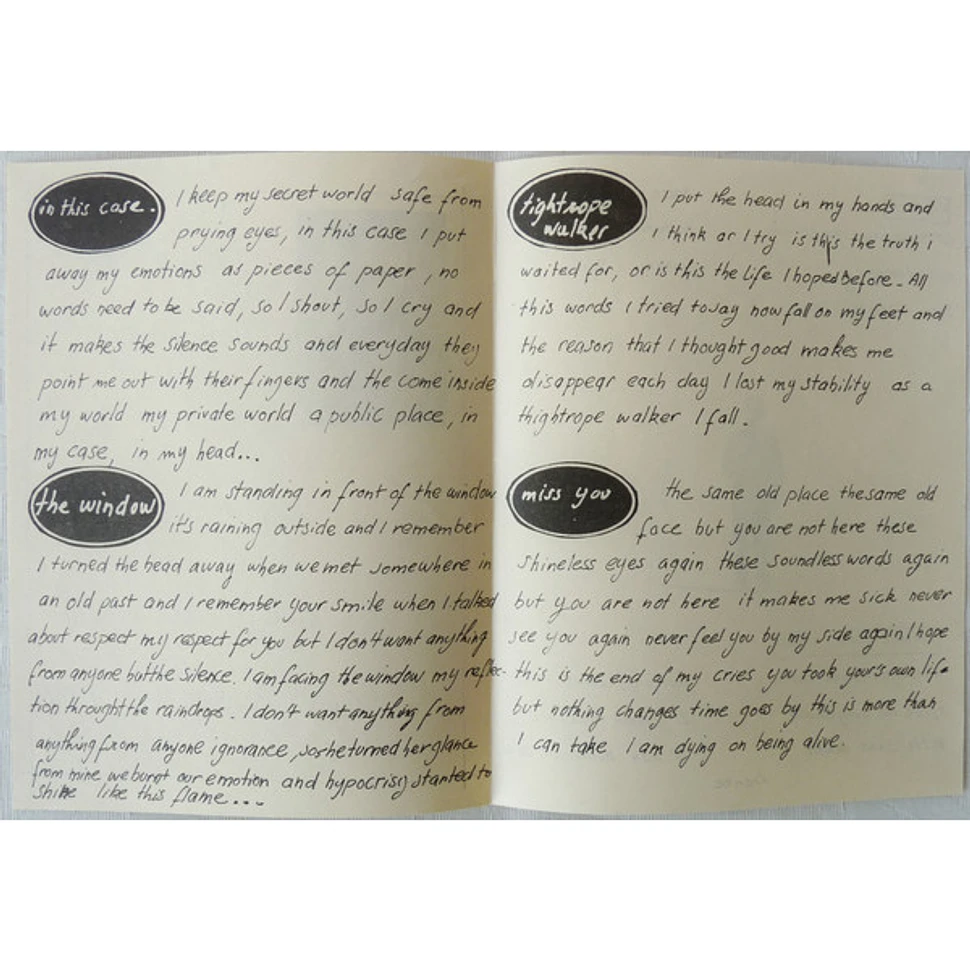 in this case.
I keep my secret world safe from
prying eyes, in this case I put
away my emotions as pieces of paper, no
words need to be said, so I shout, so I cry and
it makes the silence sounds and everyday they
point me out with their fingers and the come inside
my world my private world a public place, in
my case, in my head...
the window
I am standing in front of the window
it's raining outside and I remember
I turned the head away when we met somewhere in
an old past and I remember your smile when I talked
about respect my respect for you but I don't want anything
from anyone but the silence. I am facing the window my reflec-
tion throught the raindrops. I don't want anything from
anything from anyone ignorance, so she turned her glance
from mine we burnt our emotion and hypocrisy started to
shine like this flame...
tightrope
walker
I put the head in my hands and
I think or I try is this the truth i
waited for, or is this the life I hoped Before. All
this words I tried to say now fall on my feet and
the reason that I thought good makes me
disappear each day I lost my stability as a
thightrope walker I fall.
miss you
the same old place the same old
face but you are not here these
shineless eyes again these soundless words again
but you are not here it makes me sick never
see you again never feel you by my side again I hope
this is the end of my cries you took your's own life
but nothing changes time goes by this is more than
I can take I am dying on being alive.